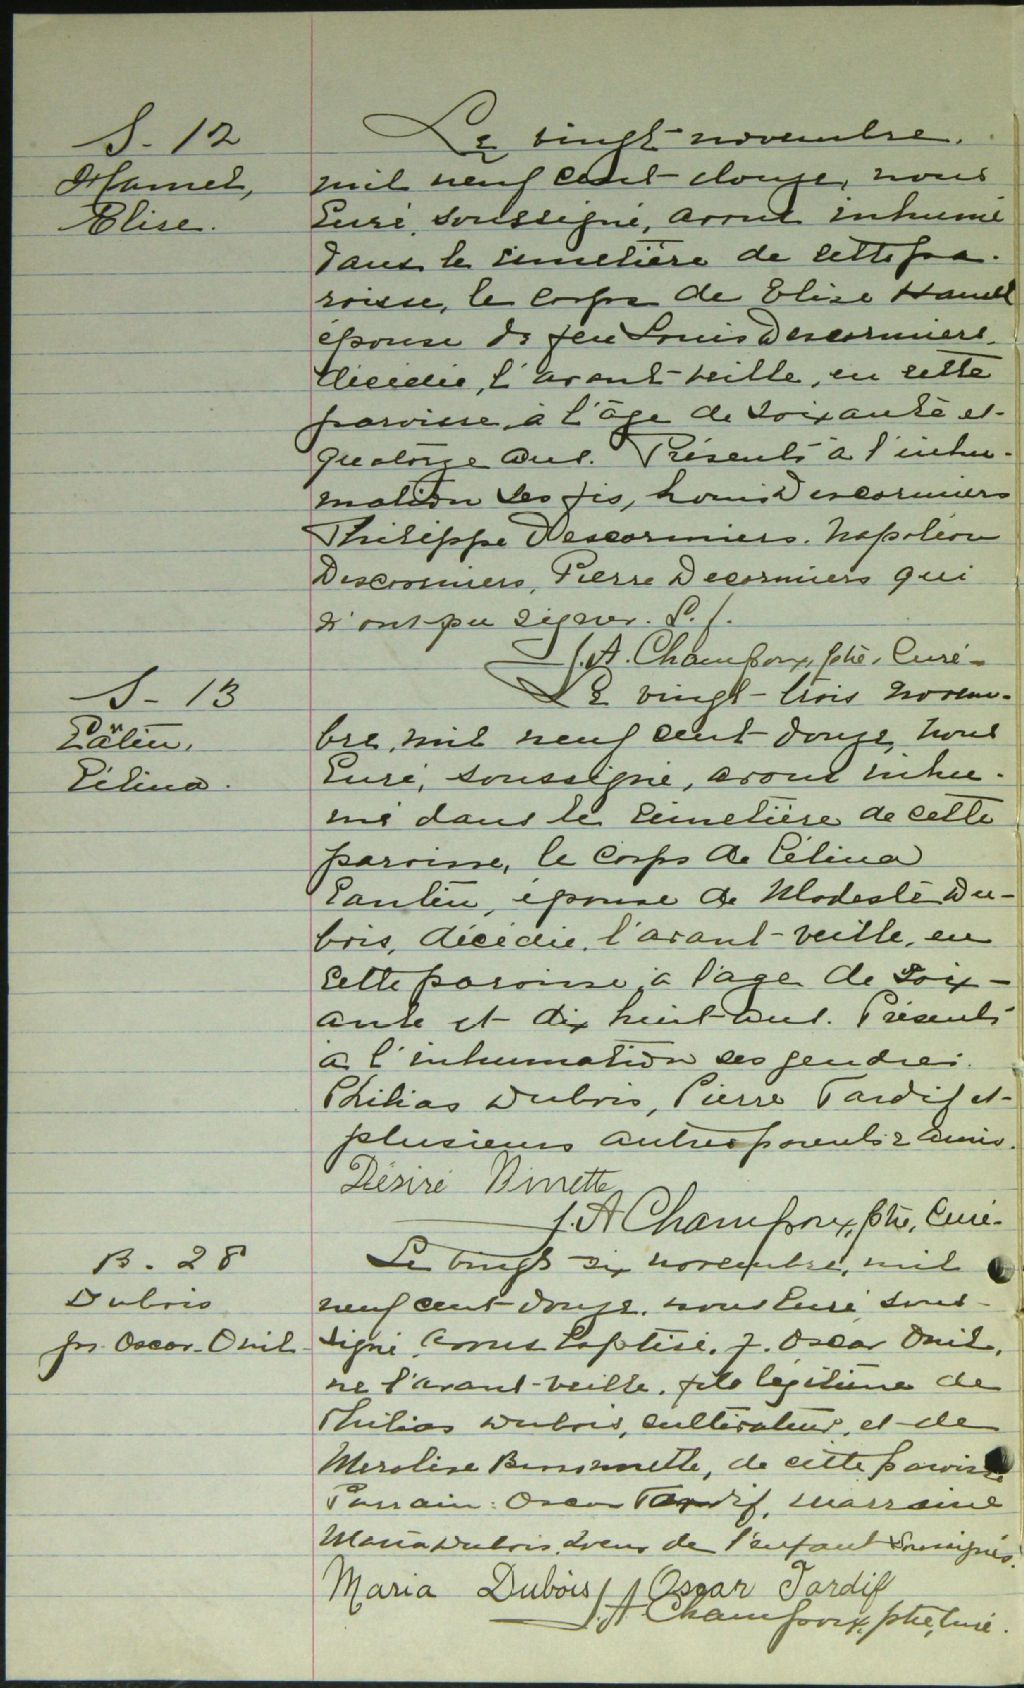 S - 12
Hamel,
Elise.
Le vingt novembre.
mil neuf cent douze, nous
Curé, soussigné, avons inhumé
dans le cimetière de cette pa-
roisse, le corps de Elise Hamel
épouse de feu Louis Descormiers.
décédée, l'avant-veille, en cette
paroisse, à l'âge de soixante et
quatorze ans. Présents à l'inhu-
mation ses fis, Louis Descormiers
Philippe Descormiers. Napoléon
Descormiers, Pierre Decormiers qui
n'ont pu signer. L. f.
J. A. Champoux, ptre, Curé -
S - 13
Célina.
Le vingt-trois novem-
bre, mil neuf cent douze, nous
Curé, soussigné, avons inhu-
mé dans le cimetière de cette
paroisse, le corps de Célina
épouse de Modeste Du-
bois, décédée, l'avant-veille, en
cette paroisse, à l'age de soix-
ante et dix huit ans. Présents
à l'inhumation ses gendres.
Philias Dubois, Pierre Tardif et
plusieurs autres parents & amis.
Désiré Binette
J. A Champoux, ptre, Curé -
B - 28
Dubois
Js. Oscar - Ovil
Le vingt six novembre, mil
neuf cent douze, nous Curé sous-
signé avons baptisé, J. Oscar Ovil,
né l'avant-veille, fils légitime de
Philias Dubois, cultivateur, et de
Merolise de cette paroisse
Parrain: Oscar Tardif, marraine
Maria Dubois, soeur de l'enfant soussignés.
Maria Dubois Oscar Tardif
J. A. Champoux, ptre, curé.